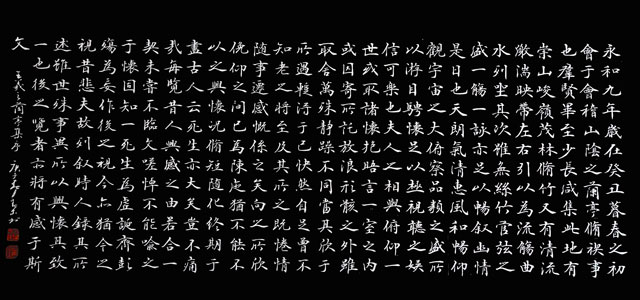 永和九年歲在癸丑暮春之初
會于會稽山陰之蘭亭脩禊事
也群賢畢至少長咸集此地有
崇山峻嶺茂林脩竹又有清流
激湍映帶左右引以為流觴曲
水列坐其次雖無絲竹管弦之
盛一觴一詠亦足以暢敘幽情
是日也天朗氣清惠風和暢仰
觀宇宙之大俯察品類之盛所
以遊目騁懷足以極視聽之娛
信可樂也夫人之相與俯仰一
世或取諸懷抱晤言一室之內
或因寄所託放浪形骸之外雖
取舍萬殊靜躁不同當其欣於
所遇暫得于己快然自足曾不
知老之將至及其所之既惓情
隨事遷感慨係之矣向之所欣
俛仰之間已為陳迹猶不能不
以之興懷況脩短隨化終期于
盡古人云死生亦大矣豈不痛
哉每覽昔人興感之由若合一
契未嘗不臨文嗟悼不能喻之
于懷固知一死生為虛誕齊彭
殤為妄作後之視今亦猶今之
視昔悲夫故列敘時人錄其所
述雖世殊事異所以興懷其致
一也後之覽者亦將有感于斯
文
王羲之蘭亭集序